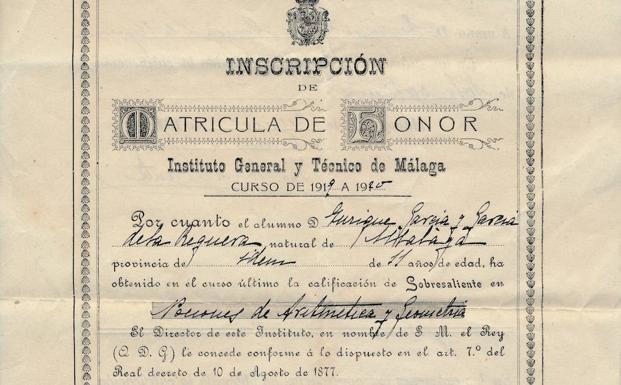 INSCRIPCIÓN
DE
MATRICULA DE HONOR
Instituto General y Técnico de Málaga
CURSO DE 1919 A 1920
Por cuanto el alumno D. Enrique Garcia y Garcia
de la Reguera, natural de Málaga
provincia de Idem de 11 años de edad, ha
obtenido en el curso último la calificación de Sobresaliente en
Nociones de Aritmética y Geometria
El Director de este Instituto, en nombre de S. M. el Rey
(Q. D. G) le concede conforme á lo dispuesto en el art. 7.º del
Real decreto de 10 de Agosto de 1877.